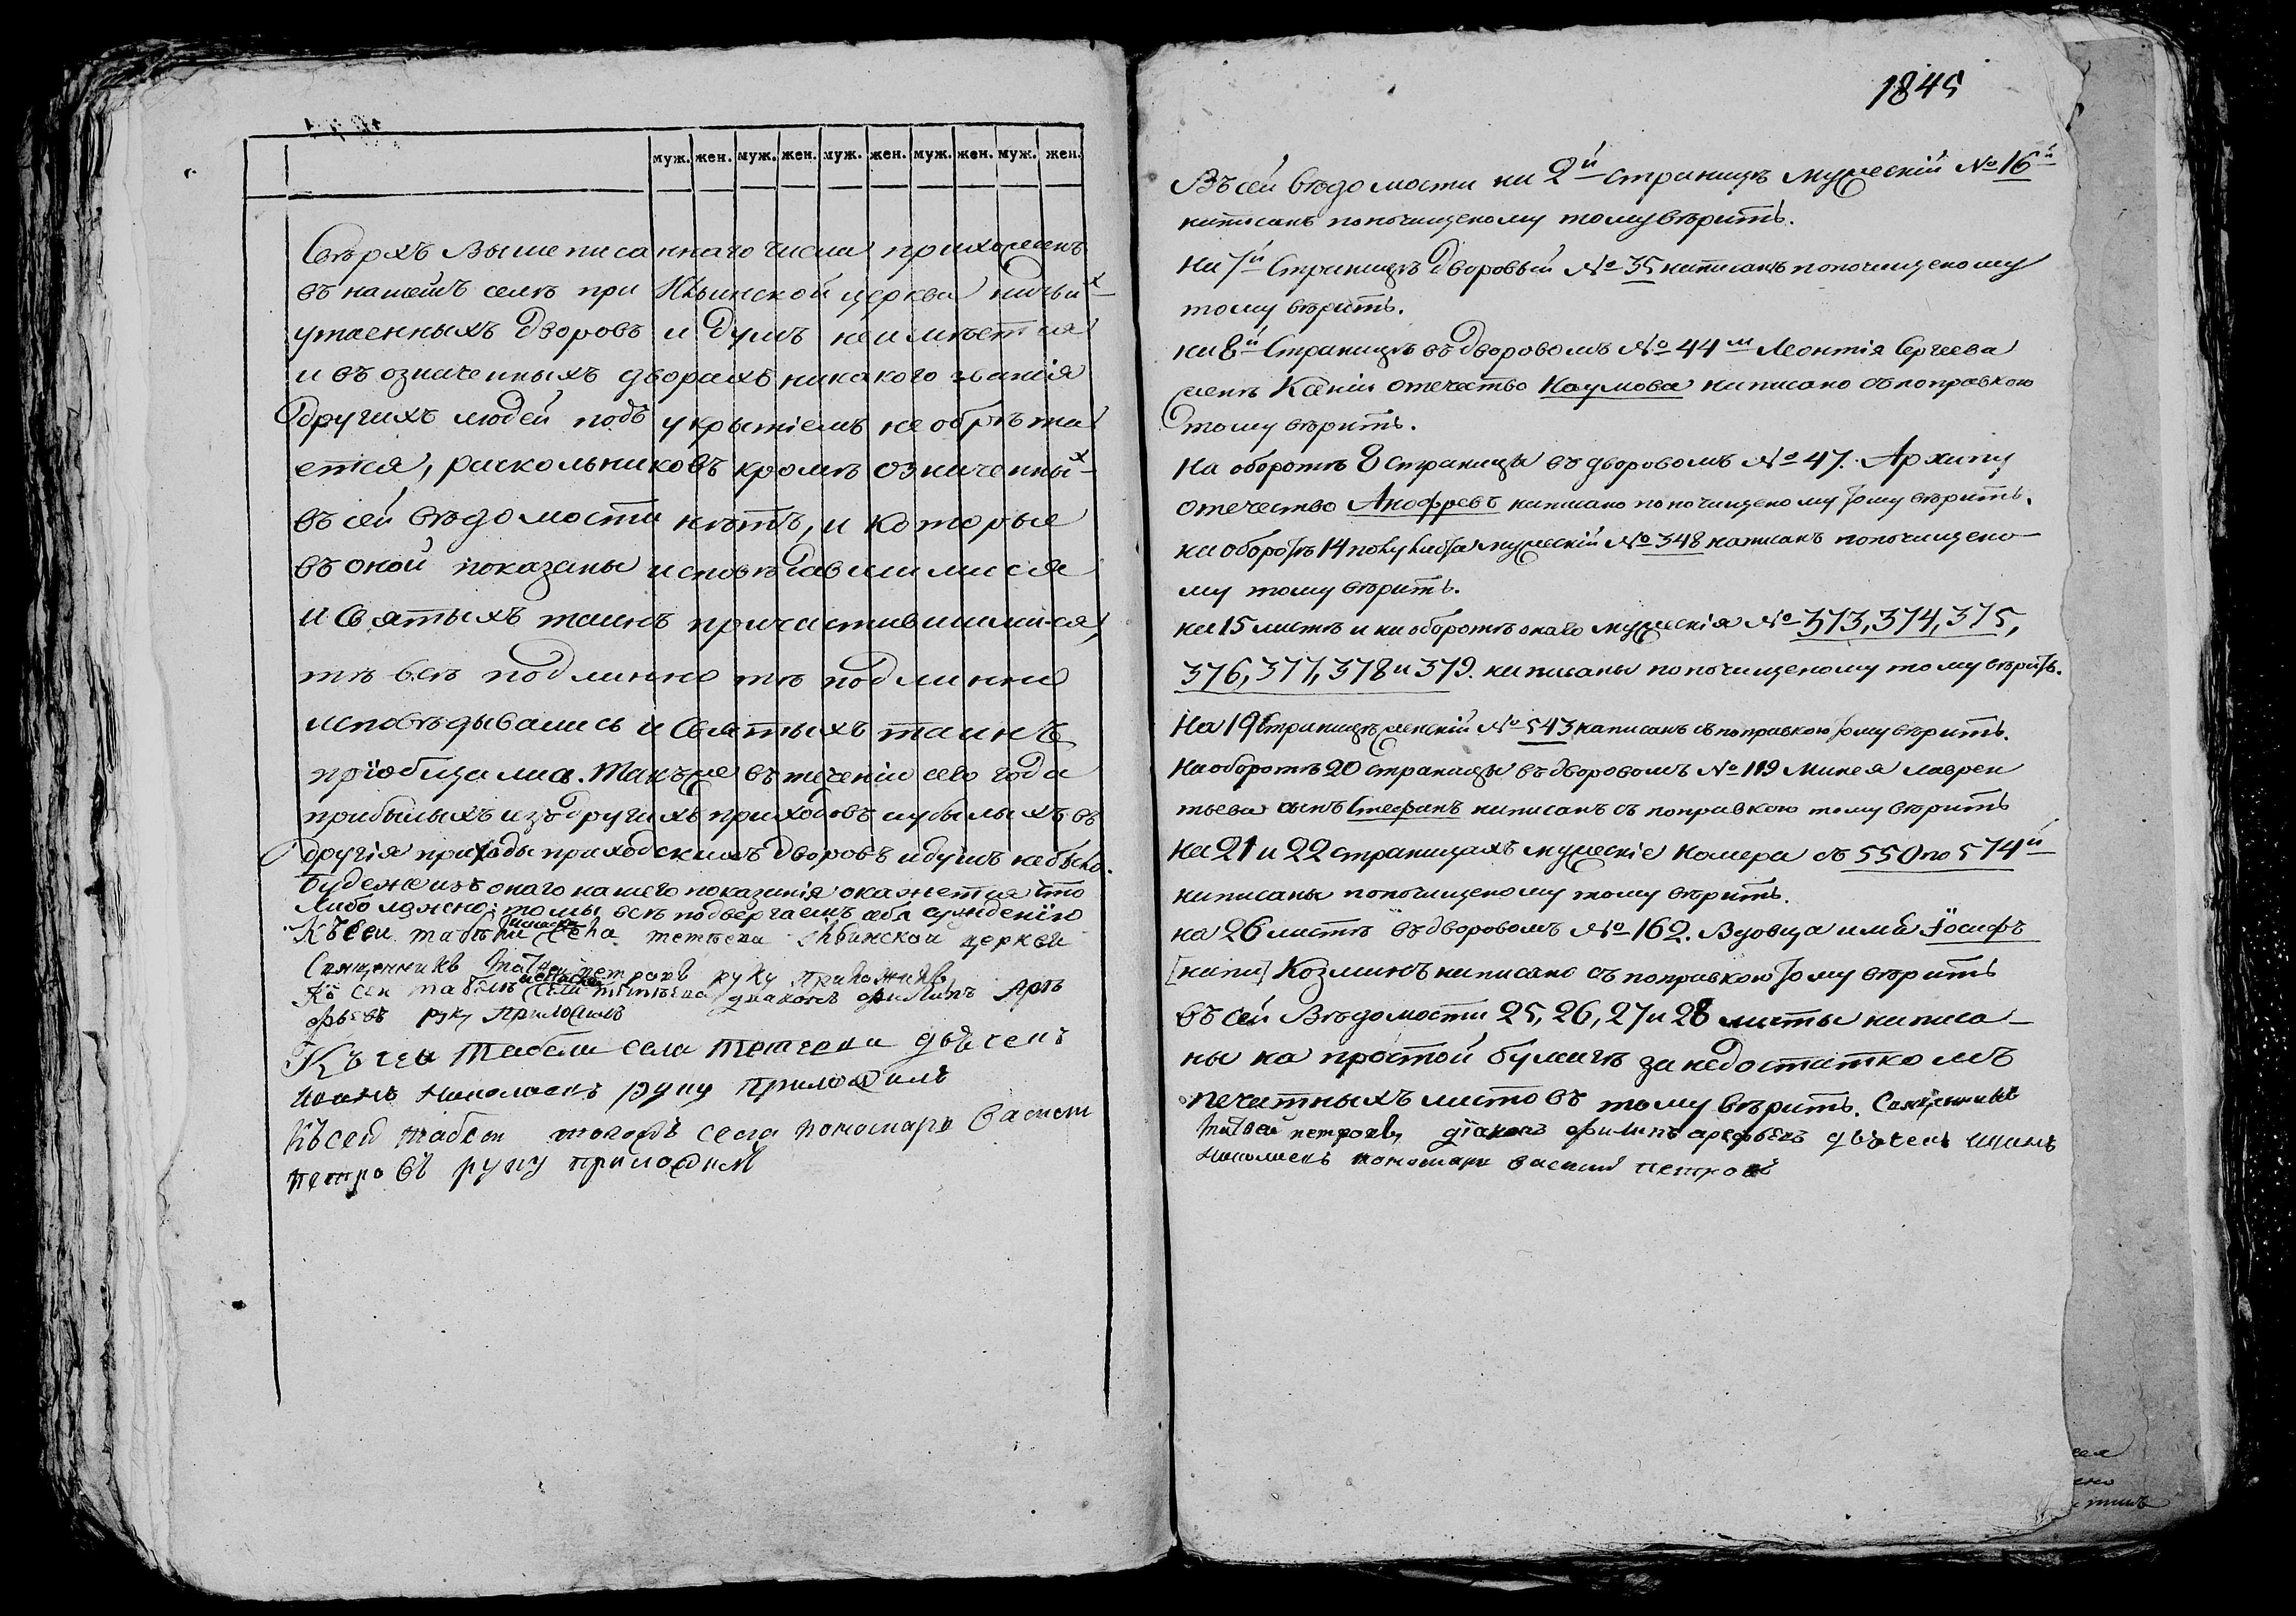 муж. жен. муж. жен. муж. жен. муж. жен. муж. жен.
Сверхъ вышеписаннаго числа прихожанъ
въ нашемъ селѣ при Ильинской церкви ничьих
утаенныхъ дворовъ и душъ не имѣется
и въ означенныхъ дворахъ никакого званія
другихъ людей подъ укрытіемъ не обрѣта
ется, раскольниковъ кромѣ означенных
въ сей вѣдомости нѣтъ, и которые
въ оной показаны исповѣдавшимися
и Святыхъ таинъ причастившимися,
тѣ всѣ подлинно тѣ подлинно
исповѣдывались и Святыхъ таинъ
пріобщались. Такъже въ теченіи сего года
прибылыхъ изъ другихъ приходовъ и убылыхъ въ
другія приходы приходскимъ дворовъ и душъ не было.
Будеже изъ онаго нашего показанія окажется что
либо ложно; то мы всѣ подвергаемъ себя сужденію
Къ сей табели села церкви
Священникъ Матвей петровъ руку приложилъ
Къ сей табелѣ села диаконъ филипъ Аре
фьевъ руку приложилъ
Къ сей табели села дьячекъ
иванъ николаевъ руку приложилъ
Къ сей табели тогожъ села пономарь васили
петровъ руку приложилъ
1845
Въ сей вѣдомости на 2й страницѣ мужескій № 16й
написанъ попочищеному тому вѣрить.
На 7й Страницѣ дворовый № 35 написанъ попочищеному
тому вѣрить.
на 8й Страницѣ въ дворовомъ № 44м Леонтія Сергеева
женѣ Ксеніи отечество Наумова написано съ поправкою
тому вѣрить.
На оборотѣ 8 страницы въ дворовомъ № 47. Архипу
отечество Анофревъ написано попочищеному тому вѣрить.
на оборотѣ 14 мужескій № 348 написанъ попочищено
му тому вѣрить.
на 15 листѣ и на оборотѣ онаго мужескія № 373, 374, 375,
376, 377, 378 и 379. написаны попочищеному тому вѣрить.
На 19 Страницѣ женскій № 543 написанъ съ поправкою тому вѣрить.
На оборотѣ 20 страницы въ дворовомъ № 119 Минея лаврен
тьева сынъ Стефанъ написанъ съ поправкою тому вѣрить
На 21 и 22 страницахъ мужескіе номера съ 550 по 574й
написаны попочищеному тому вѣрить.
на 26 листѣ въ дворовомъ № 162. Вдовца имя Іосифъ
[напи] Козминъ написано съ поправкою тому вѣрить
въ сей Вѣдомости 25, 26, 27 и 28 листы написа
ны на простой бумагѣ за недостаткомъ
печатныхъ листовъ тому вѣрить. Священникъ
Матвей петровъ, діаконъ филипъ арефьевъ дьячекъ иванъ
николаевъ пономарь василий петровъ